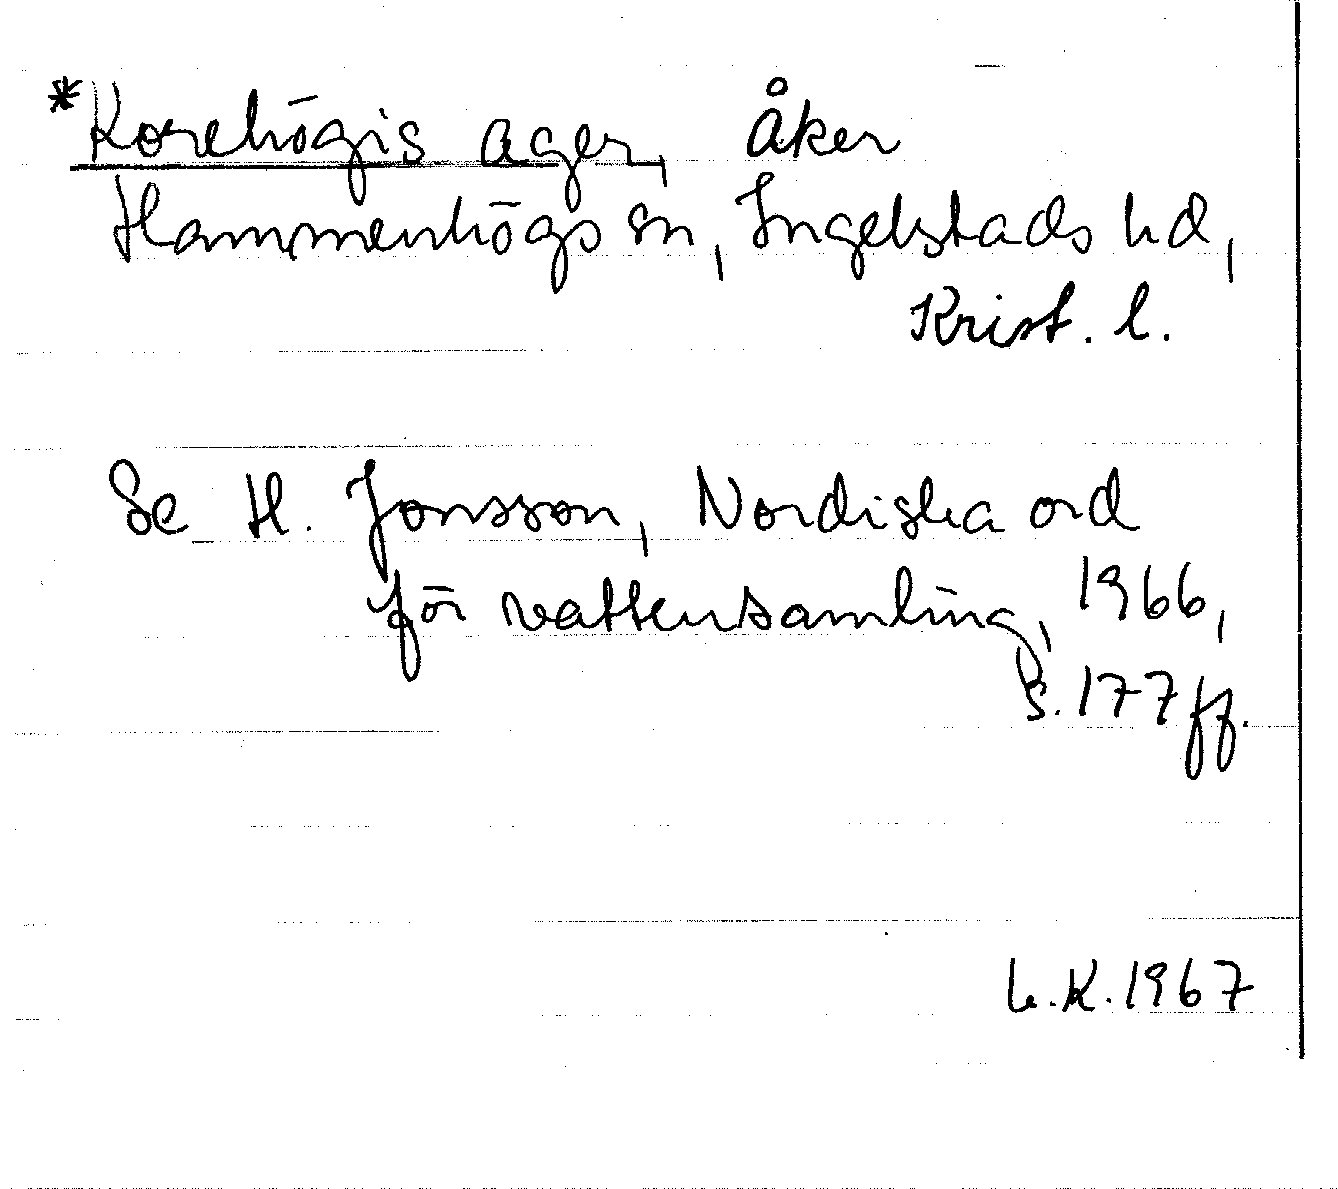 *Korehögis ager, åker
Hammenhögs sn, Ingelstads hd,
Krist. l.
Se H. Jonsson, Nordiska ord
för vattensamling, 1966,
s. 177 ff.
L.K. 1967